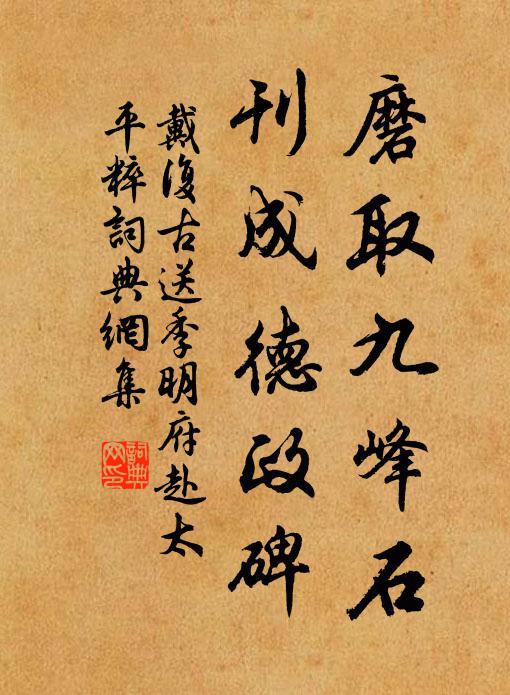 磨取九峰石
刊成德政碑
戴復古送季明府赴太
平粹詞典網集
詞典
网印